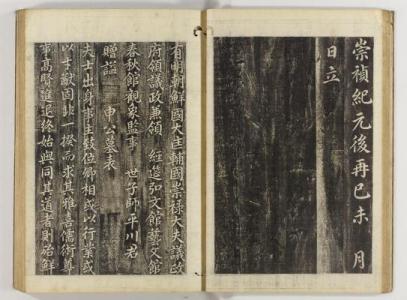 崇禎紀元後再己未　月
日立
有明朝鮮國大匡輔國崇祿大夫議政
府領議政兼領　經筵弘文館藝文館
春秋館觀象監事　世子師平川君
贈謚　　申公墓表
夫士出身事主致位卿相或以行業或
以才猷固非一揆而求其雅善儒術尊
事高賢進退終始與同其道者則殆鮮